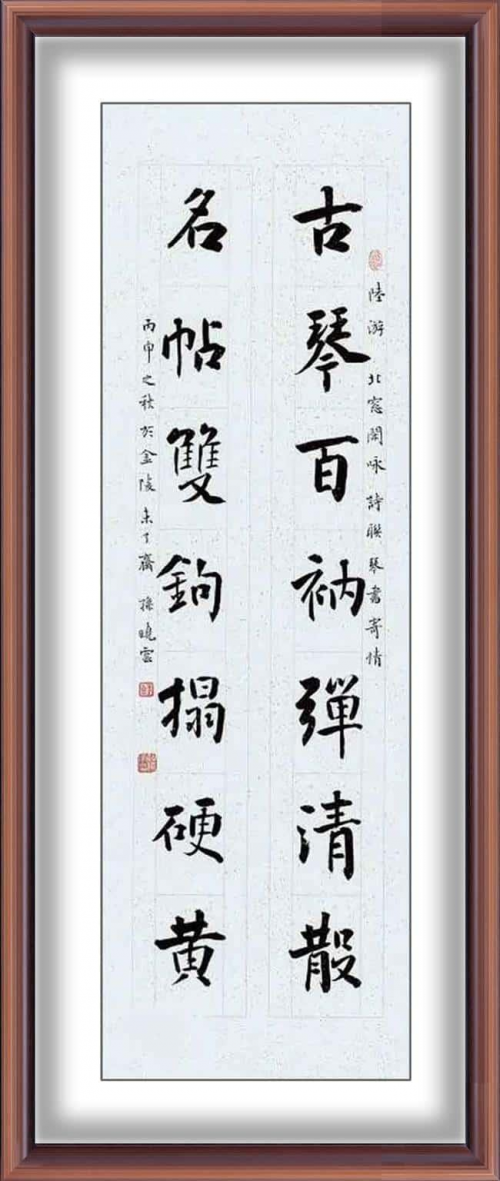 陸游北窓閑咏詩聯琴書寄情
古琴百衲彈清散
名帖雙鉤搨硬黃
丙申之秋於金陵未了齋孫曉雲